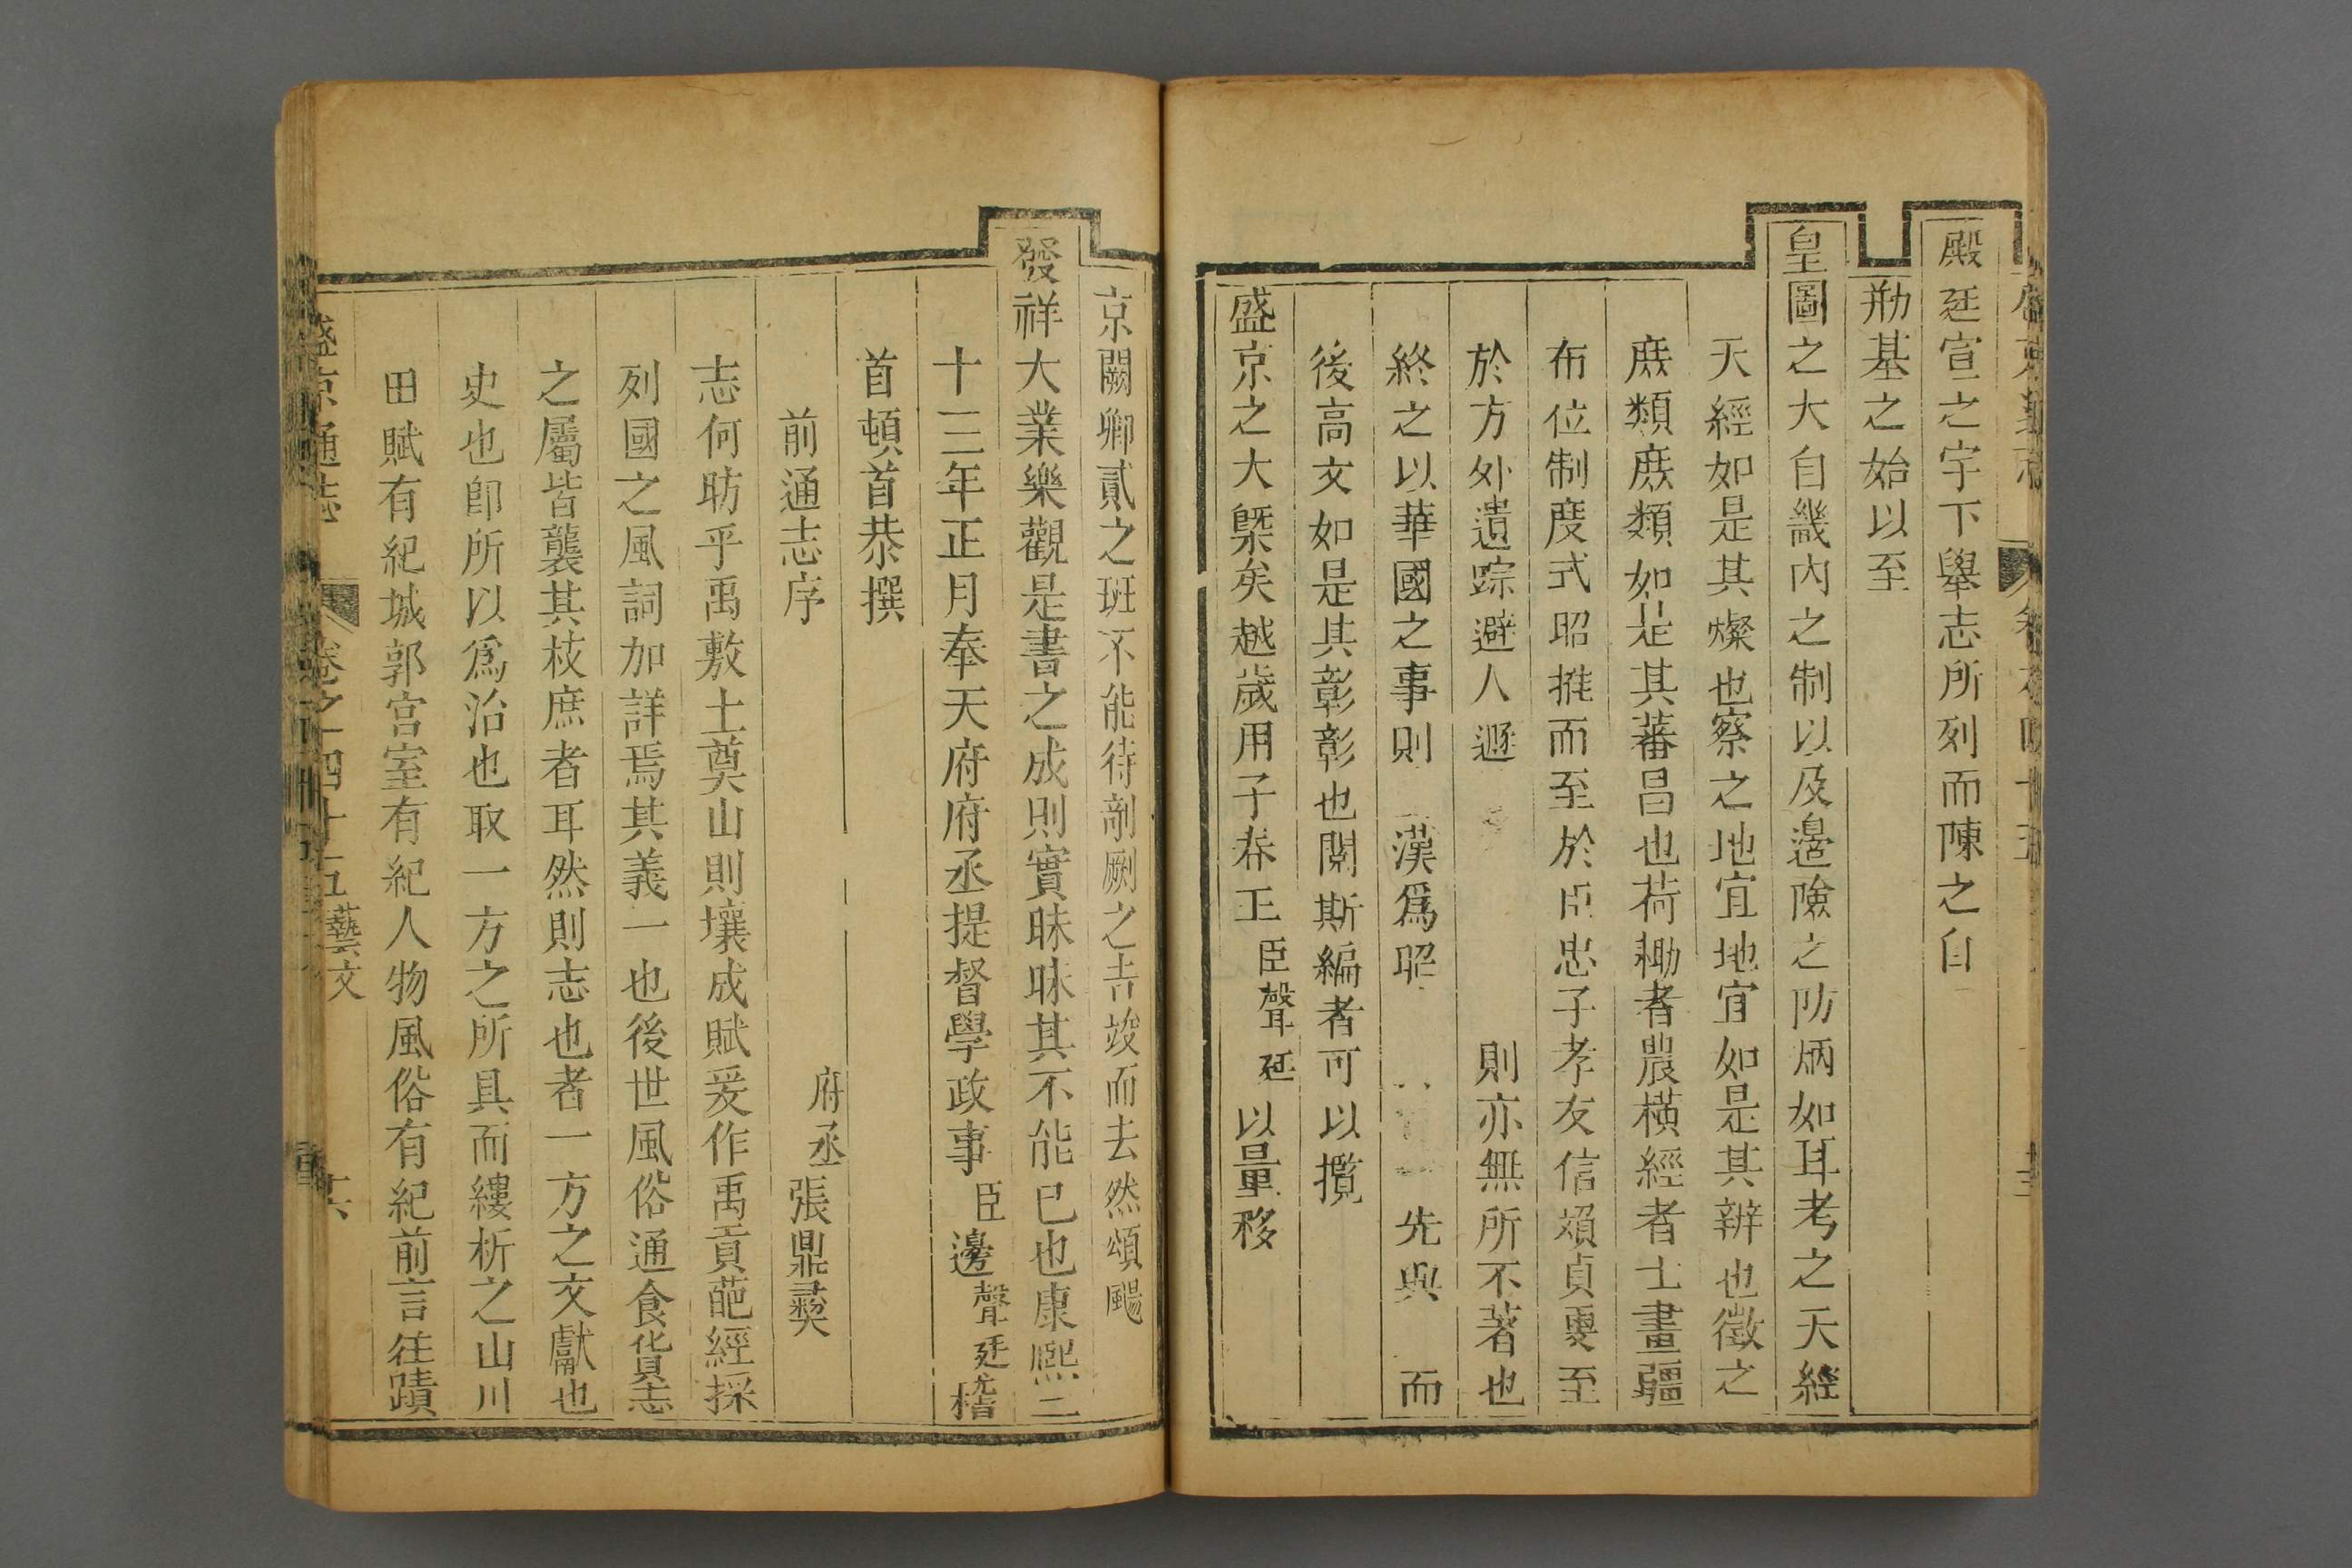 殿廷宣之宇下舉志所列而陳之自
剏基之始以至
皇圖之大自畿內之制以及邊險之防炳如耳考之天經
天經如是其燦也察之地宜地宜如是其辨也徵之
庶類庶類如是其蕃昌也荷耡者農橫經者士畫疆
布位制度式昭推而至於臣忠子孝友信頌貞更至
於方外遺踪避人遯 則亦無所不著也
終之以華國之事則 漢爲昭 先與 而
後高文如是其彰彰也閱斯編者可以攬
盛京之大槩矣越歲用子春正臣聲廷以量移
京闕卿貳之班不能待剞劂之告竣而去然頌颺
發祥大業樂觀是書之成則實昧昧其不能已也康熙二
十三年正月奉天府府丞提督學政事臣邊聲廷稽
首頓首恭撰
前通志序
府丞張鼎彝
志何昉乎禹敷土奠山則壤成賦爰作禹貢葩經採
列國之風詞加詳焉其義一也後世風俗通食貨志
之屬皆襲其枝庶者耳然則志也者一方之文獻也
史也卽所以爲治也取一方之所具而縷析之山川
田賦有紀城郭宮室有紀人物風俗有紀前言往蹟
盛京通志 卷之四十五 藝文